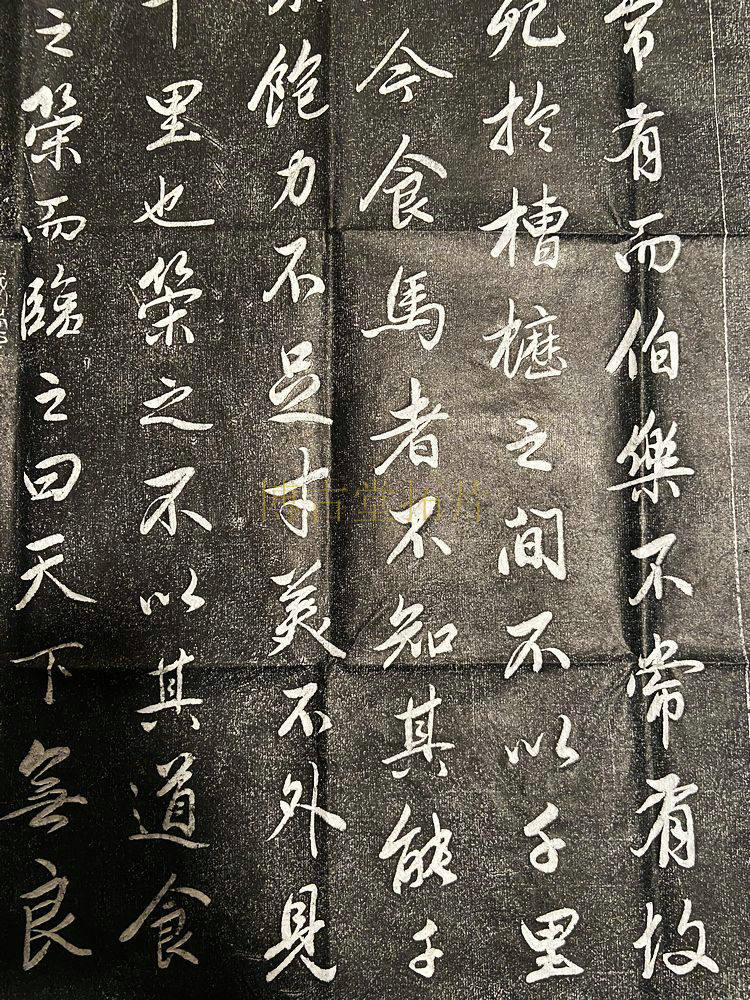 常有而伯樂不常有故
死於槽櫪之間不以千里
今食馬者不知其能千
不飽力不足才美不外見
千里也策之不以其道食
之策而臨之曰天下無良
博古堂拓片